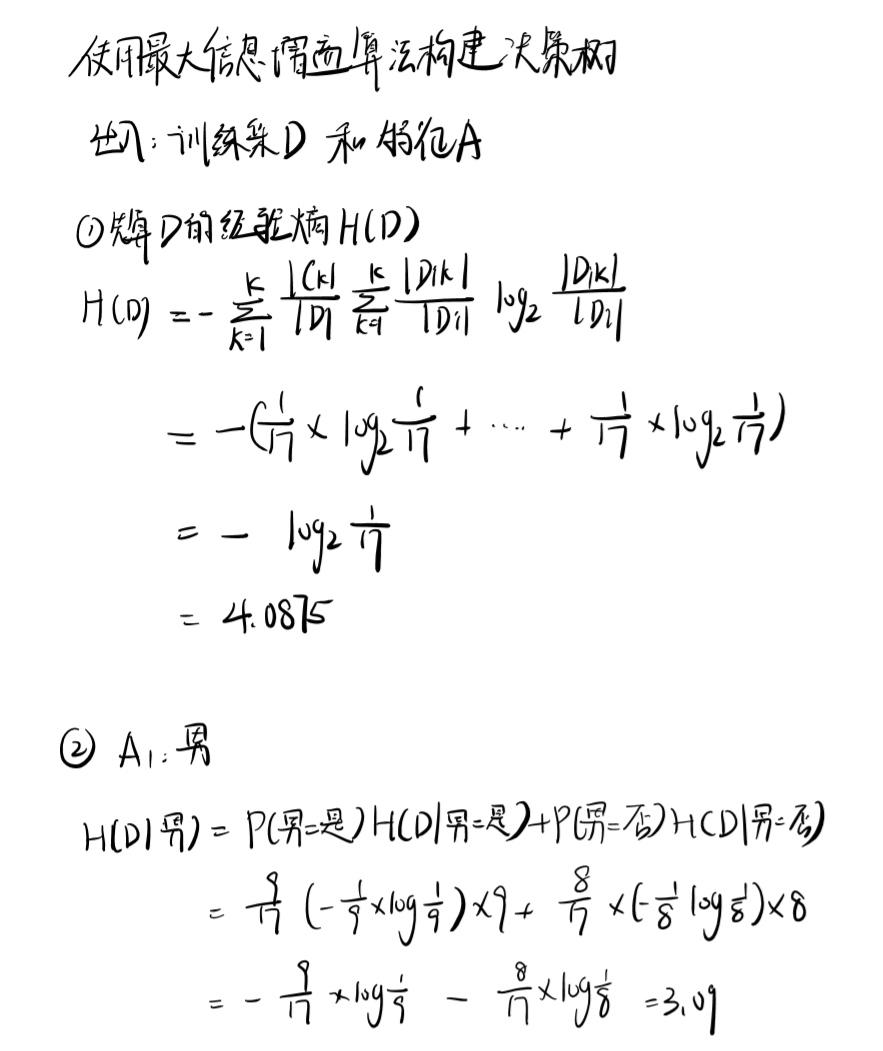 使用最大信息增益算法构建决策树
输入:训练集D 和特征A
①先算D的经验熵H(D)
H(D) = - ∑_{k=1}^{K} |Ck|/|D| ∑_{k=1}^{K} |Dik|/|Di| log₂ |Dik|/|Di|
= -(1/17 × log₂ 1/17 + .... + 1/17 × log₂ 1/17)
= - log₂ 1/17
= 4.0875
② A₁: 男
H(D|男) = P(男=是)H(D|男=是)+P(男=否)H(D|男=否)
= 9/17 (-1/9 × log 1/9) × 9 + 8/17 × (-1/8 log 1/8) × 8
= - 9/17 × log 1/9 - 8/17 × log 1/8 = 3.09